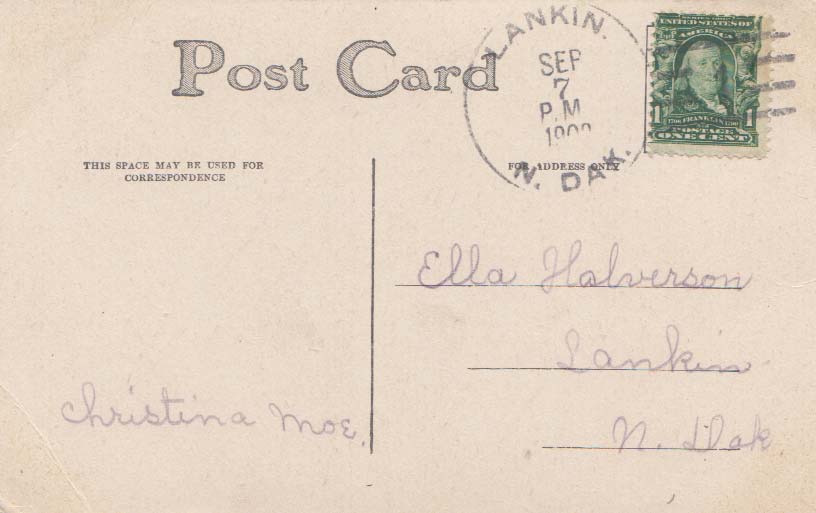 Post Card
LANKIN.
SEP
7
P.M
N. DAK.
SERIES 1902
UNITED STATES OF
AMERICA
1 1706 FRANKLIN 1790 1
POSTAGE
ONE CENT
THIS SPACE MAY BE USED FOR
CORRESPONDENCE
FOR ADDRESS ONLY
Ella Halverson
Lankin
N. Dak
Christina Moe.